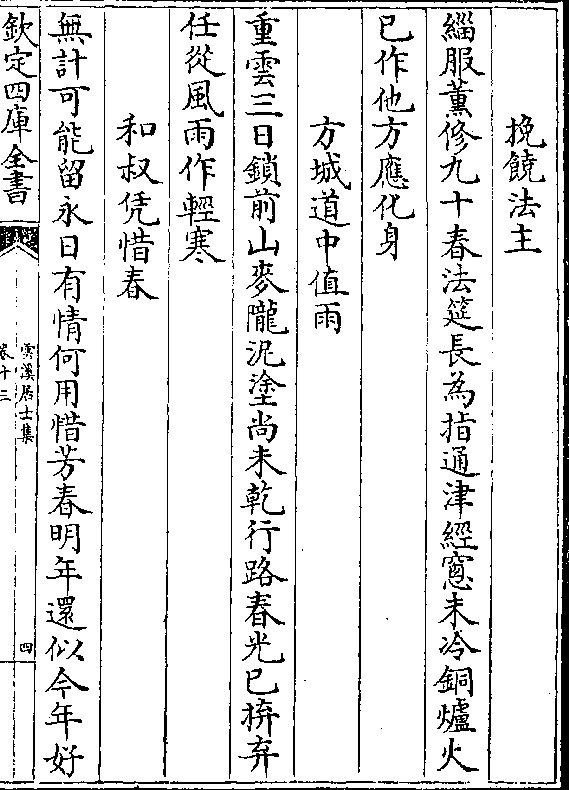 挽饒法主
緇服薰修九十春法筵長為指通津經窻未冷銅爐火
已作他方應化身
方城道中值雨
重雲三日鎖前山麥隴泥塗尚未乾行路春光已拚弃
任從風雨作輕寒
和叔凭惜春
無計可能留永日有情何用惜芳春明年還似今年好
欽定四庫全書
雲溪居士集
卷十三
四